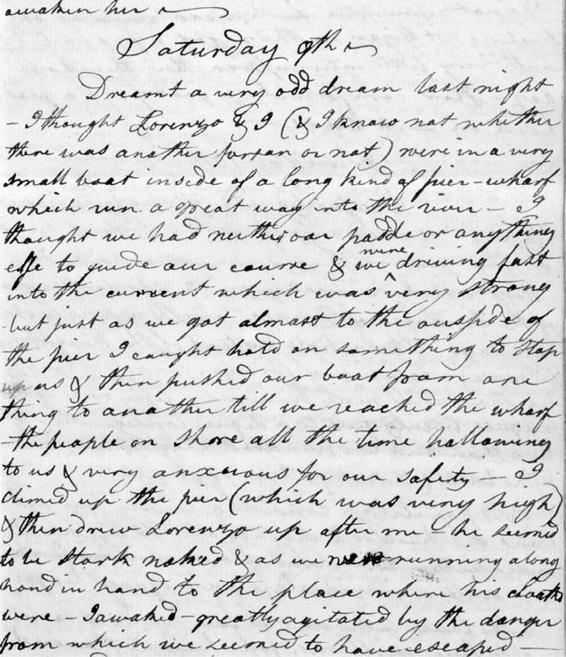 awaken her
Saturday 9th
Dreamt a very odd dream last night
- I thought Lorenzo & I (& I know not whether
there was another person or not) were in a very
small boat inside of a long kind of pier-wharf
which run a great way into the river - I
thought we had neither oar paddle or anything
else to guide our course & we were driving fast
into the current which was very strong
- but just as we got almost to the outside of
the pier I caught hold on something to stop
up us & then pushed our boat from one
thing to another till we reached the wharf
- the people on shore all the time hallowing
to us & very anxious for our safety - I
climed up the pier (which was very high)
& then drew Lorenzo up after me - he seemed
to be stark naked & as we were running along
hand in hand to the place where his cloaths
were - I awaked - greatly agitated by the danger
from which we seemed to have escaped -